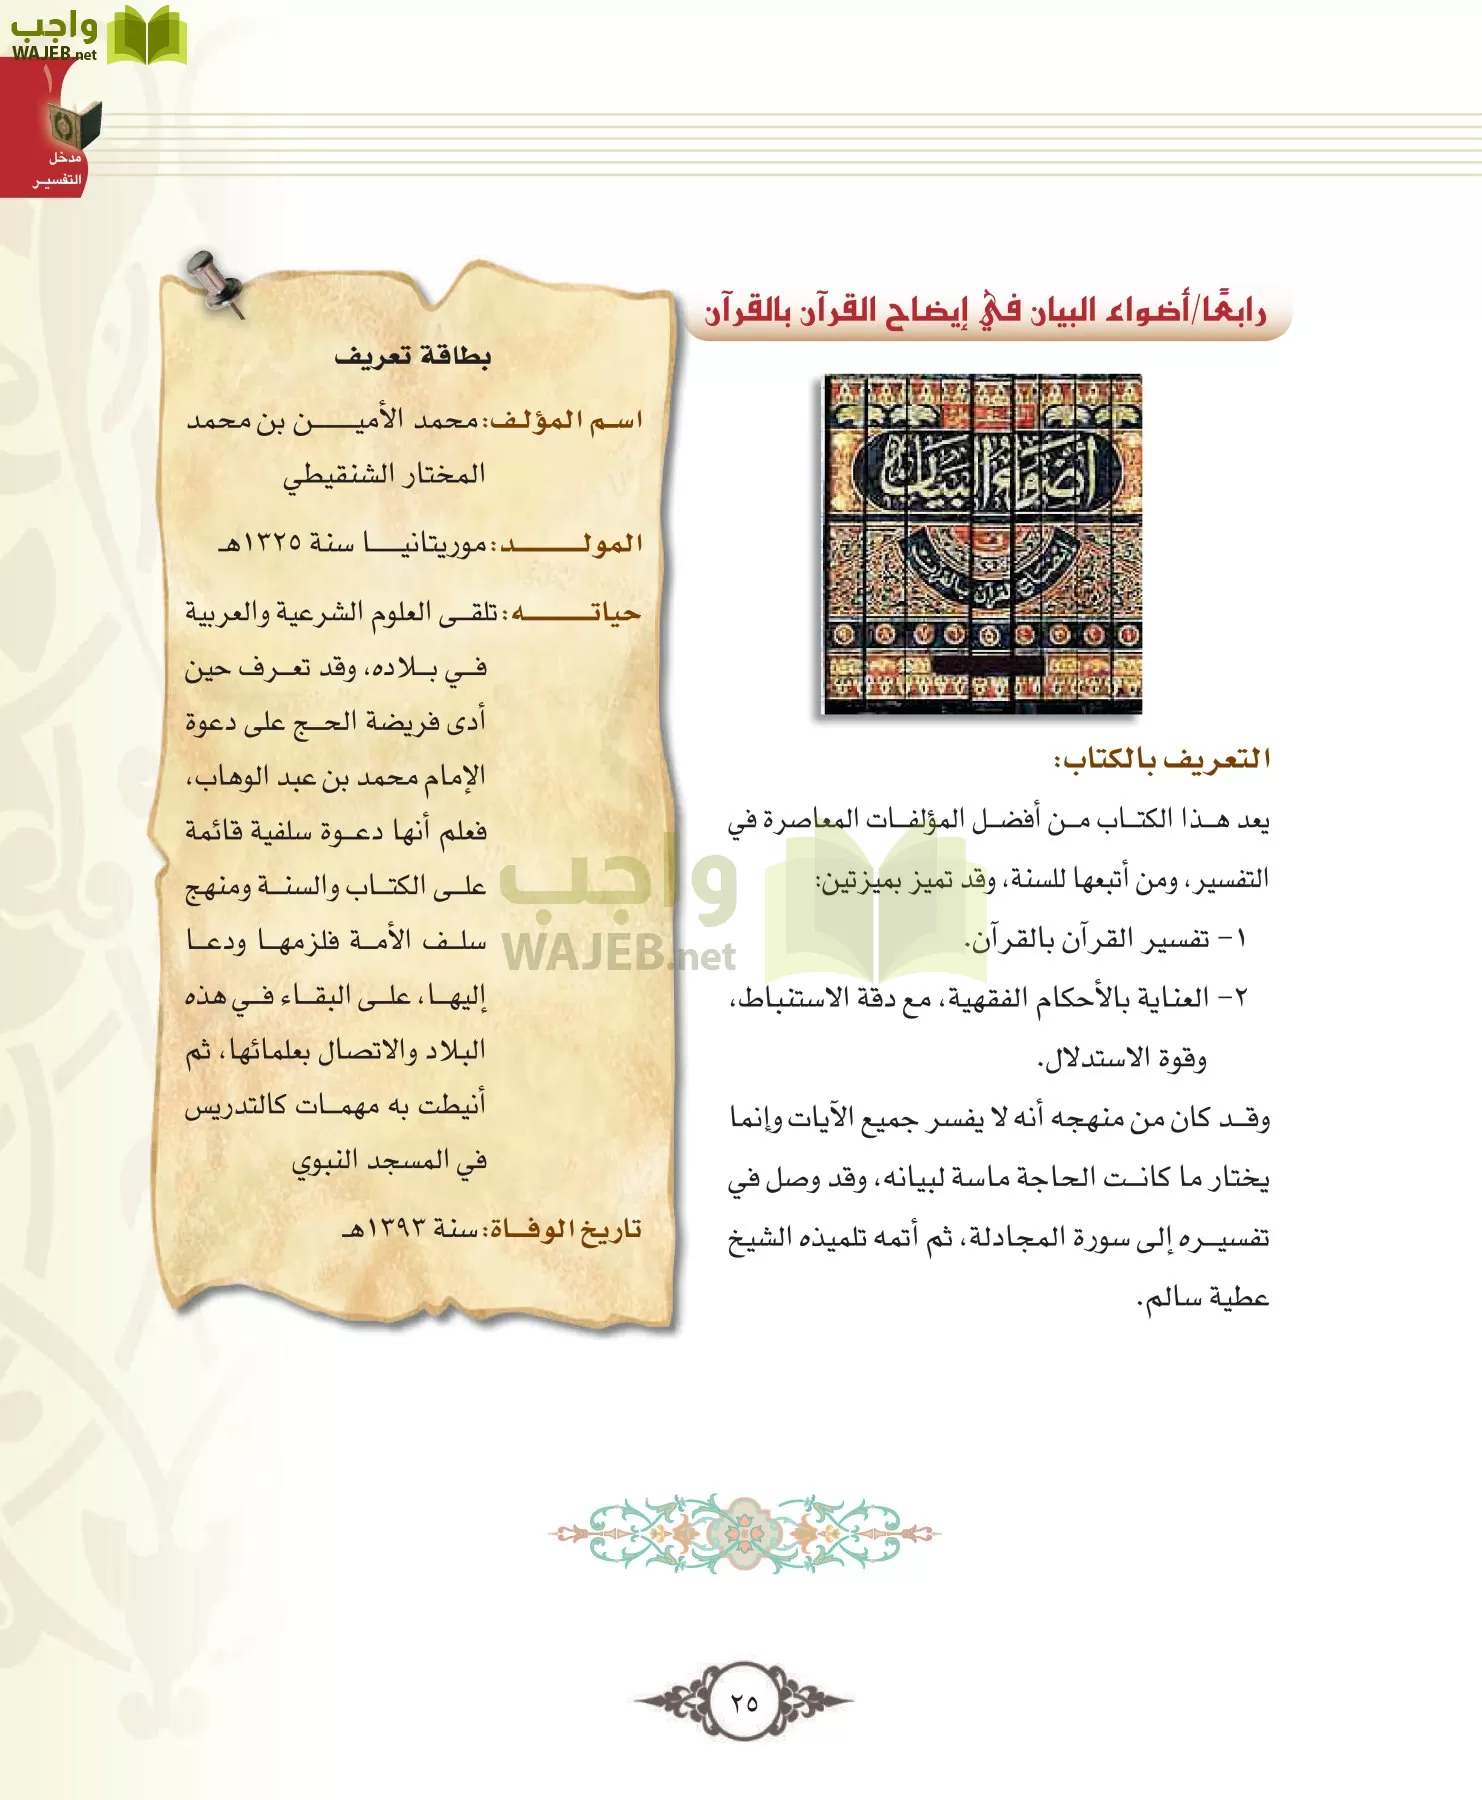 واجب
WAJEB.net
١
مدخل
التفسير
رابعًا/أضواء البيان في إيضاح القرآن بالقرآن
أضواء البيان
التعريف بالكتاب:
يعد هذا الكتاب من أفضل المؤلفات المعاصرة في
التفسير، ومن أتبعها للسنة، وقد تميز بميزتين:
١- تفسير القرآن بالقرآن.
٢- العناية بالأحكام الفقهية، مع دقة الاستنباط،
وقوة الاستدلال.
وقد كان من منهجه أنه لا يفسر جميع الآيات وإنما
يختار ما كانت الحاجة ماسة لبيانه، وقد وصل في
تفسيره إلى سورة المجادلة، ثم أتمه تلميذه الشيخ
عطية سالم.
بطاقة تعريف
اسم المؤلف: محمد الأمين بن محمد
المختار الشنقيطي
المولد: موريتانيا سنة ١٣٢٥هـ
حياته: تلقى العلوم الشرعية والعربية
في بلاده، وقد تعرف حين
أدى فريضة الحج على دعوة
الإمام محمد بن عبد الوهاب،
فعلم أنها دعوة سلفية قائمة
على الكتاب والسنة ومنهج
سلف الأمة فلزمها ودعا
إليها، على البقاء في هذه
البلاد والاتصال بعلمائها، ثم
أنيطت به مهمات كالتدريس
في المسجد النبوي
تاريخ الوفاة: سنة ١٣٩٣هـ
واجب
WAJEB.net
٢٥